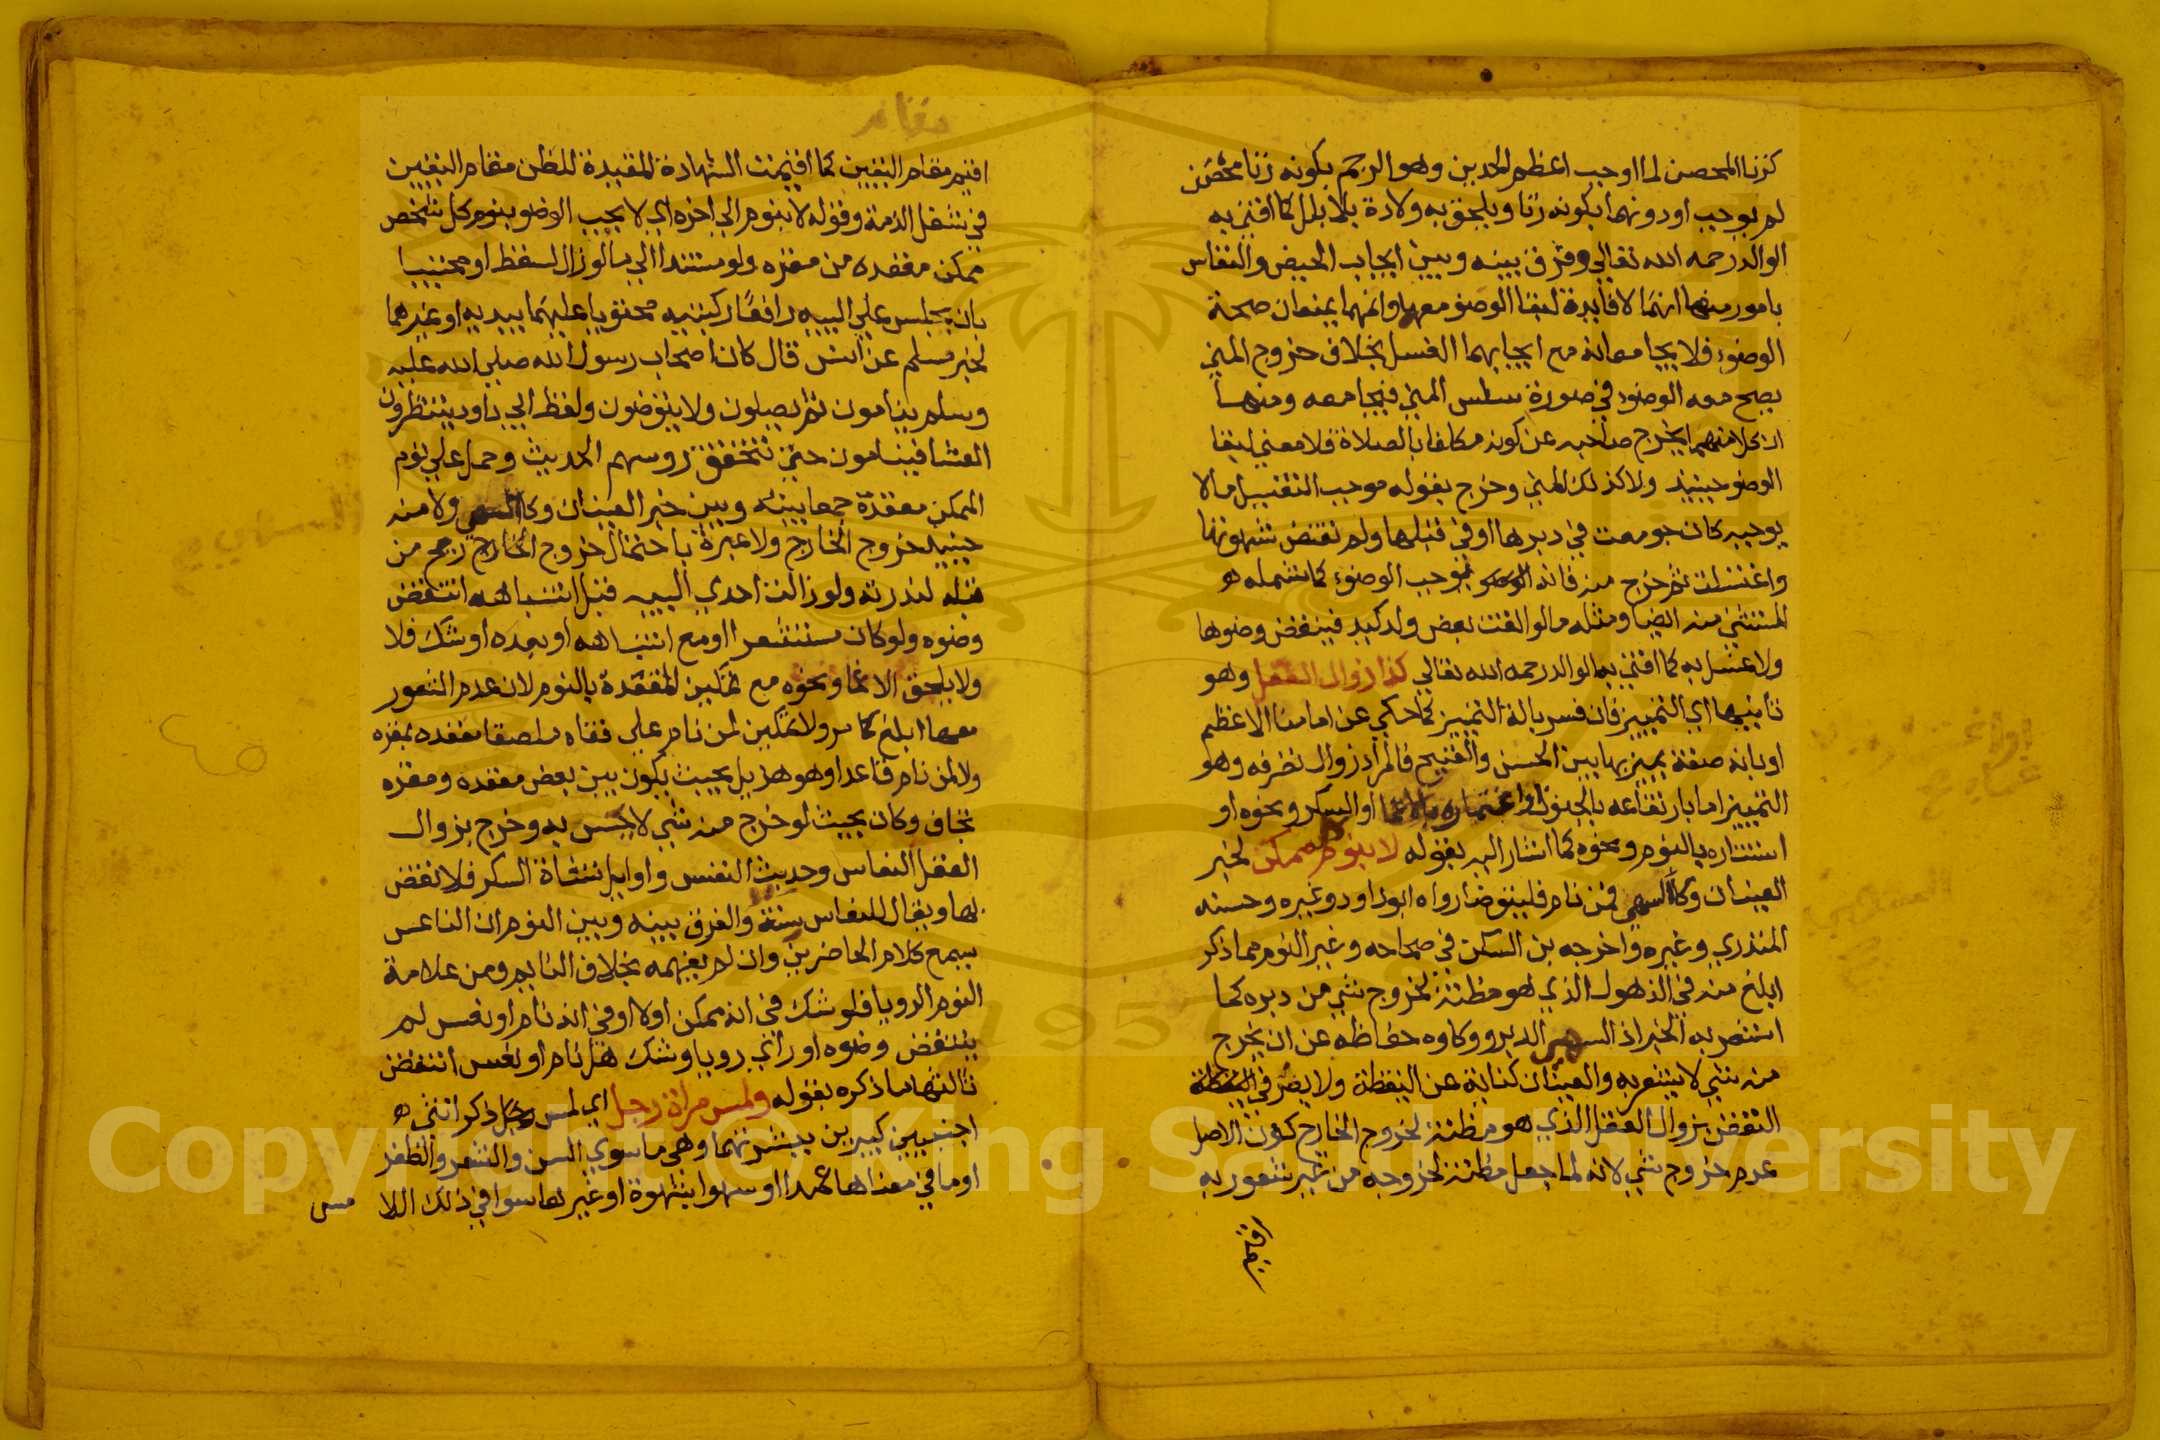 كزنا المحصن لما اوجب اعظم الحدين وهو الرجم بكونه زنا محصن
لم يوجب ادونهما بكونه زنا ويلحق به ولادة بلا بلل كما افتى به
الوالد رحمه الله تعالي وفرق بينه وبين ايجاب الحيض والنفاس
بامور منها انهما لا فايدة لبقا الوضو معهما وانهما يمنعان صحة
الوضوء فلا يجامعانه مع ايجابهما الغسل بخلاف خروج المني
يصح معه الوضوء في صورة سلس المني فيجامعه ومنها
ان كلا منهما يخرج صاحبه عن كونه مكلفا بالصلاة فلا معني لبقا
الوضو حينيذ ولا كذلك المني وخرج بقوله موجب التفصيل ما لا
يوجبه كان جومعت في دبرها او في قبلها ولم تقض شهوتها
واغتسلت ثم خرج منه فانه يوجب الوضوء كما شمله
المستثني منه ايضا ومثله ما لو القت بعض ولد كيد فينقض وضوها
ولا غسل به كما افتي به الوالد رحمه الله تعالي كذا زوال العقل وهو
ثانيها اي التمييز فان فسر بالة التمييز كما حكي عن امامنا الاعظم
او بانه صفة يميز بها بين الحسن والقبيح فالمراد زوال تصرفه وهو
التمييز اما بارتفاعه بالجنون او انغماره بالاغما او السكر ونحوه او
استتاره بالنوم ونحوه كما اشار اليه بقوله لا بنوم ممكن لخبر
العينان وكا السه فمن نام فليتوضا رواه ابو داود وغيره وحسنه
المنذري وغيره واخرجه بن السكن في صحاحه وغير النوم مما ذكر
ابلغ منه في الذهول الذي هو مظنة لخروج شي من دبره كما
اشعر به الخبر اذ السه الدبر ووكاوه حفاظه عن ان يخرج
منه شي لا يشعر به والعينان كناية عن اليقظة ولا يضر في
النقض بزوال العقل الذي هو مظنة لخروج الخارج كون الاصل
عدم خروج شي لانه لما جعل مظنة لخروجه من غير شعور به
اقيم مقام
اقيم مقام اليقين كما اقيمت الشهادة المفيدة للظن مقام اليقين
في شغل الذمة وقوله لا بنوم الي اخره اي لا يجب الوضو بنوم كل شخص
ممكن مقعده من مقره ولو مستندا الي ما لو زال لسقط او محتبيا
بان يجلس علي الييه رافعا ركبتيه محتويا عليهما بيديه او غيرهما
لخبر مسلم عن انس قال كان اصحاب رسول الله صلي الله عليه
وسلم ينامون ثم يصلون ولا يتوضون ولفظ ابي داود ينتظرون
العشا فينامون حتي تخفق روسهم الحديث وحمل علي نوم
الممكن مقعدة جمعا بينه وبين خبر العينان وكا السه ولا منه
حينيذ خروج الخارج ولا عبرة باحتمال خروج الخارج ريح من
قبله لندرته ولو زالت احدي الييه قبل انتباهه انتقض
وضوه ولو كان مستشعرا او مع انتباهه او بعده او شك فلا
ولا يلحق الاغما ونحوه مع تمكين المقعدة بالنوم لان عدم الشعور
معها ابلغ كما مر ولا تمكين لمن نام علي قفاه ملصقا مقعده بمقره
ولا لمن نام قاعدا وهو هزيل بحيث يكون بين بعض مقعده ومقره
تجاف وكان بحيث لو خرج منه شي لا يحس به وخرج بزوال
العقل النعاس وحديث النفس واوايل نشاة السكر فلا نقض
بها ويقال للنعاس سنة والفرق بينه وبين النوم ان الناعس
يسمع كلام الحاضرين وان لم يفهمه بخلاف النايم ومن علامة
النوم الرويا فلو شك في انه ممكن اولا او في انه نام او نعس لم
ينتقض وضوه او راي رويا وشك هل نام او نعس انتقض
ثالثها ما ذكره بقوله ولمس مراة رجل اي لمس ذكر انثي
اجنبيين كبيرين ببشرتهما وهي ما سوي السن والشعر والظفر
او ما في معناها عمدا او سهوا بشهوة او غيرها سوا في ذلك اللا
مس
Copyright © King Saud University
1957